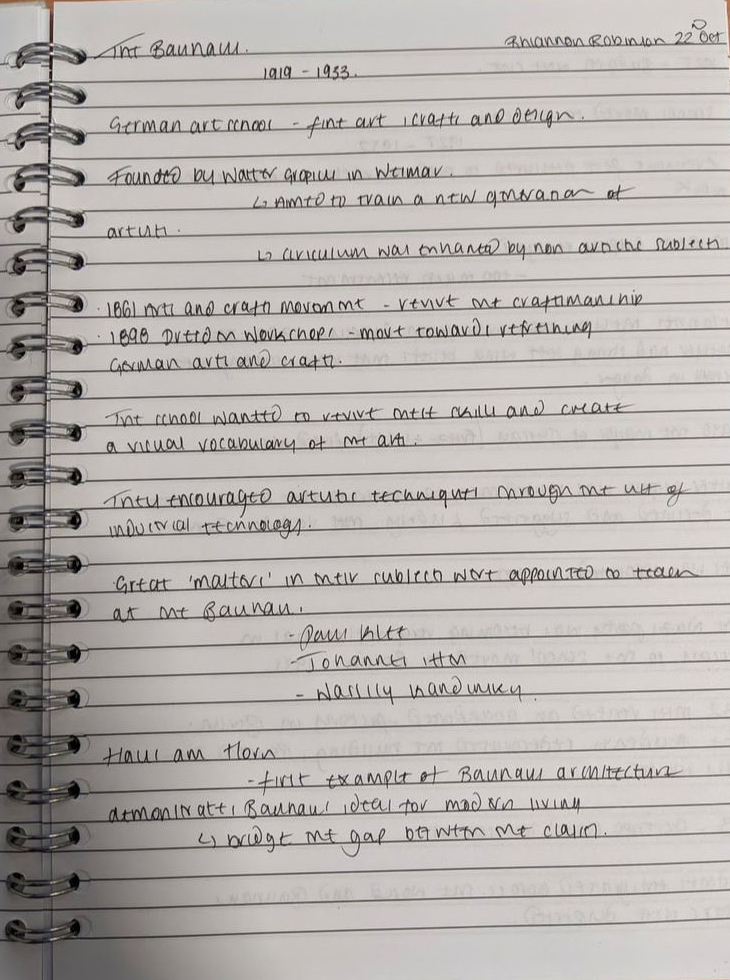 The Bauhaus. Rhiannon Robinson 22 Oct
1919 - 1933.
German art school - fine art, crafts and design.
Founded by Walter Gropius in Weimar.
↳ Aimed to train a new generation of
artists.
↳ curiculum was enhanted by non artistic subjects
· 1861 Arts and crafts movement - revive the craftsmanship
· 1898 Dresden Workshops - move towards refining
German arts and crafts.
The school wanted to revive these skills and create
a visual vocabulary of the arts.
They encouraged artistic techniques through the use of
industrial technology.
Great 'masters' in their subjects were appointed to teach
at the Bauhau.
- Paul Klee
- Johannes Itten
- Wassily Kandinsky.
Haus am Horn
- first example of Bauhaus architecture
demonstrates Bauhaus ideal for modern living
↳ bridge the gap between the classes.